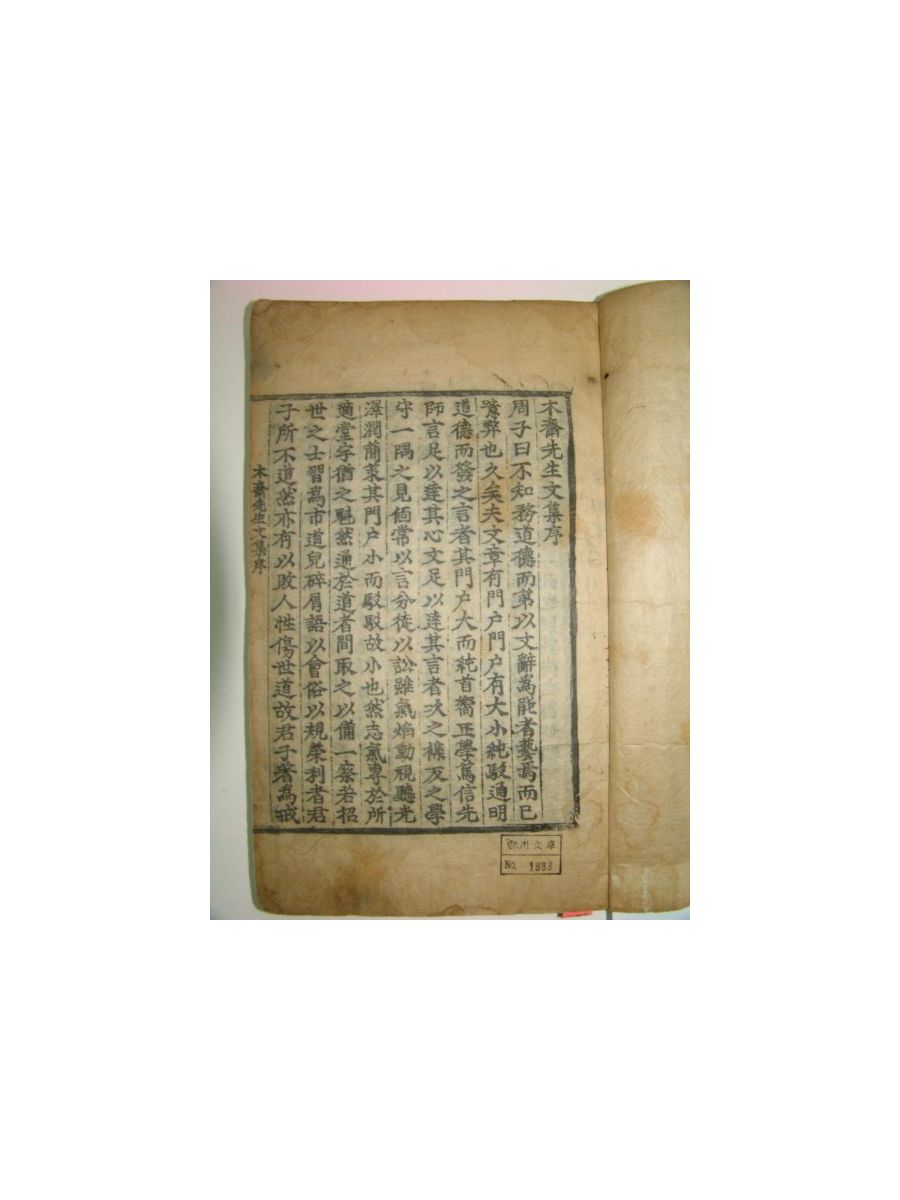 木齋先生文集序
周子曰不知務道德而第以文辭爲能者藝焉而已
弊也久矣夫文章有門户門户有大小純駁通明
道德而發之言者其門户大而純首嚮正學篤信先
師言足以達其心文足以達其言者次之機反之學
守一隅之見個常以言分徒以訟雖氣焰動視聽光
澤潤簡策其門户小而駁駁故小也然志氣專於所
適堂宇猶之魁然通於道者間取之以備一察若招
世之士習爲市道兒碎屑語以會俗以規榮利者君
子所不道然亦有以敗人性傷世道故君子著爲戒
木齋先生文集序
文庫
No. 1933